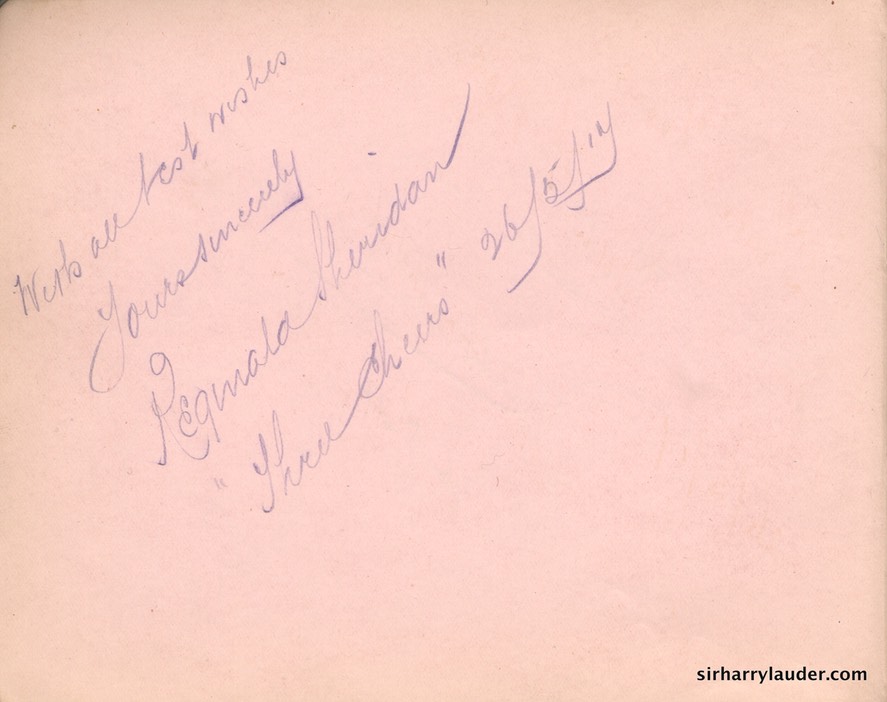 With all best wishes
Yours sincerely
Reginald Sheridan
"Three Cheers" 26/5/17
sirharrylauder.com